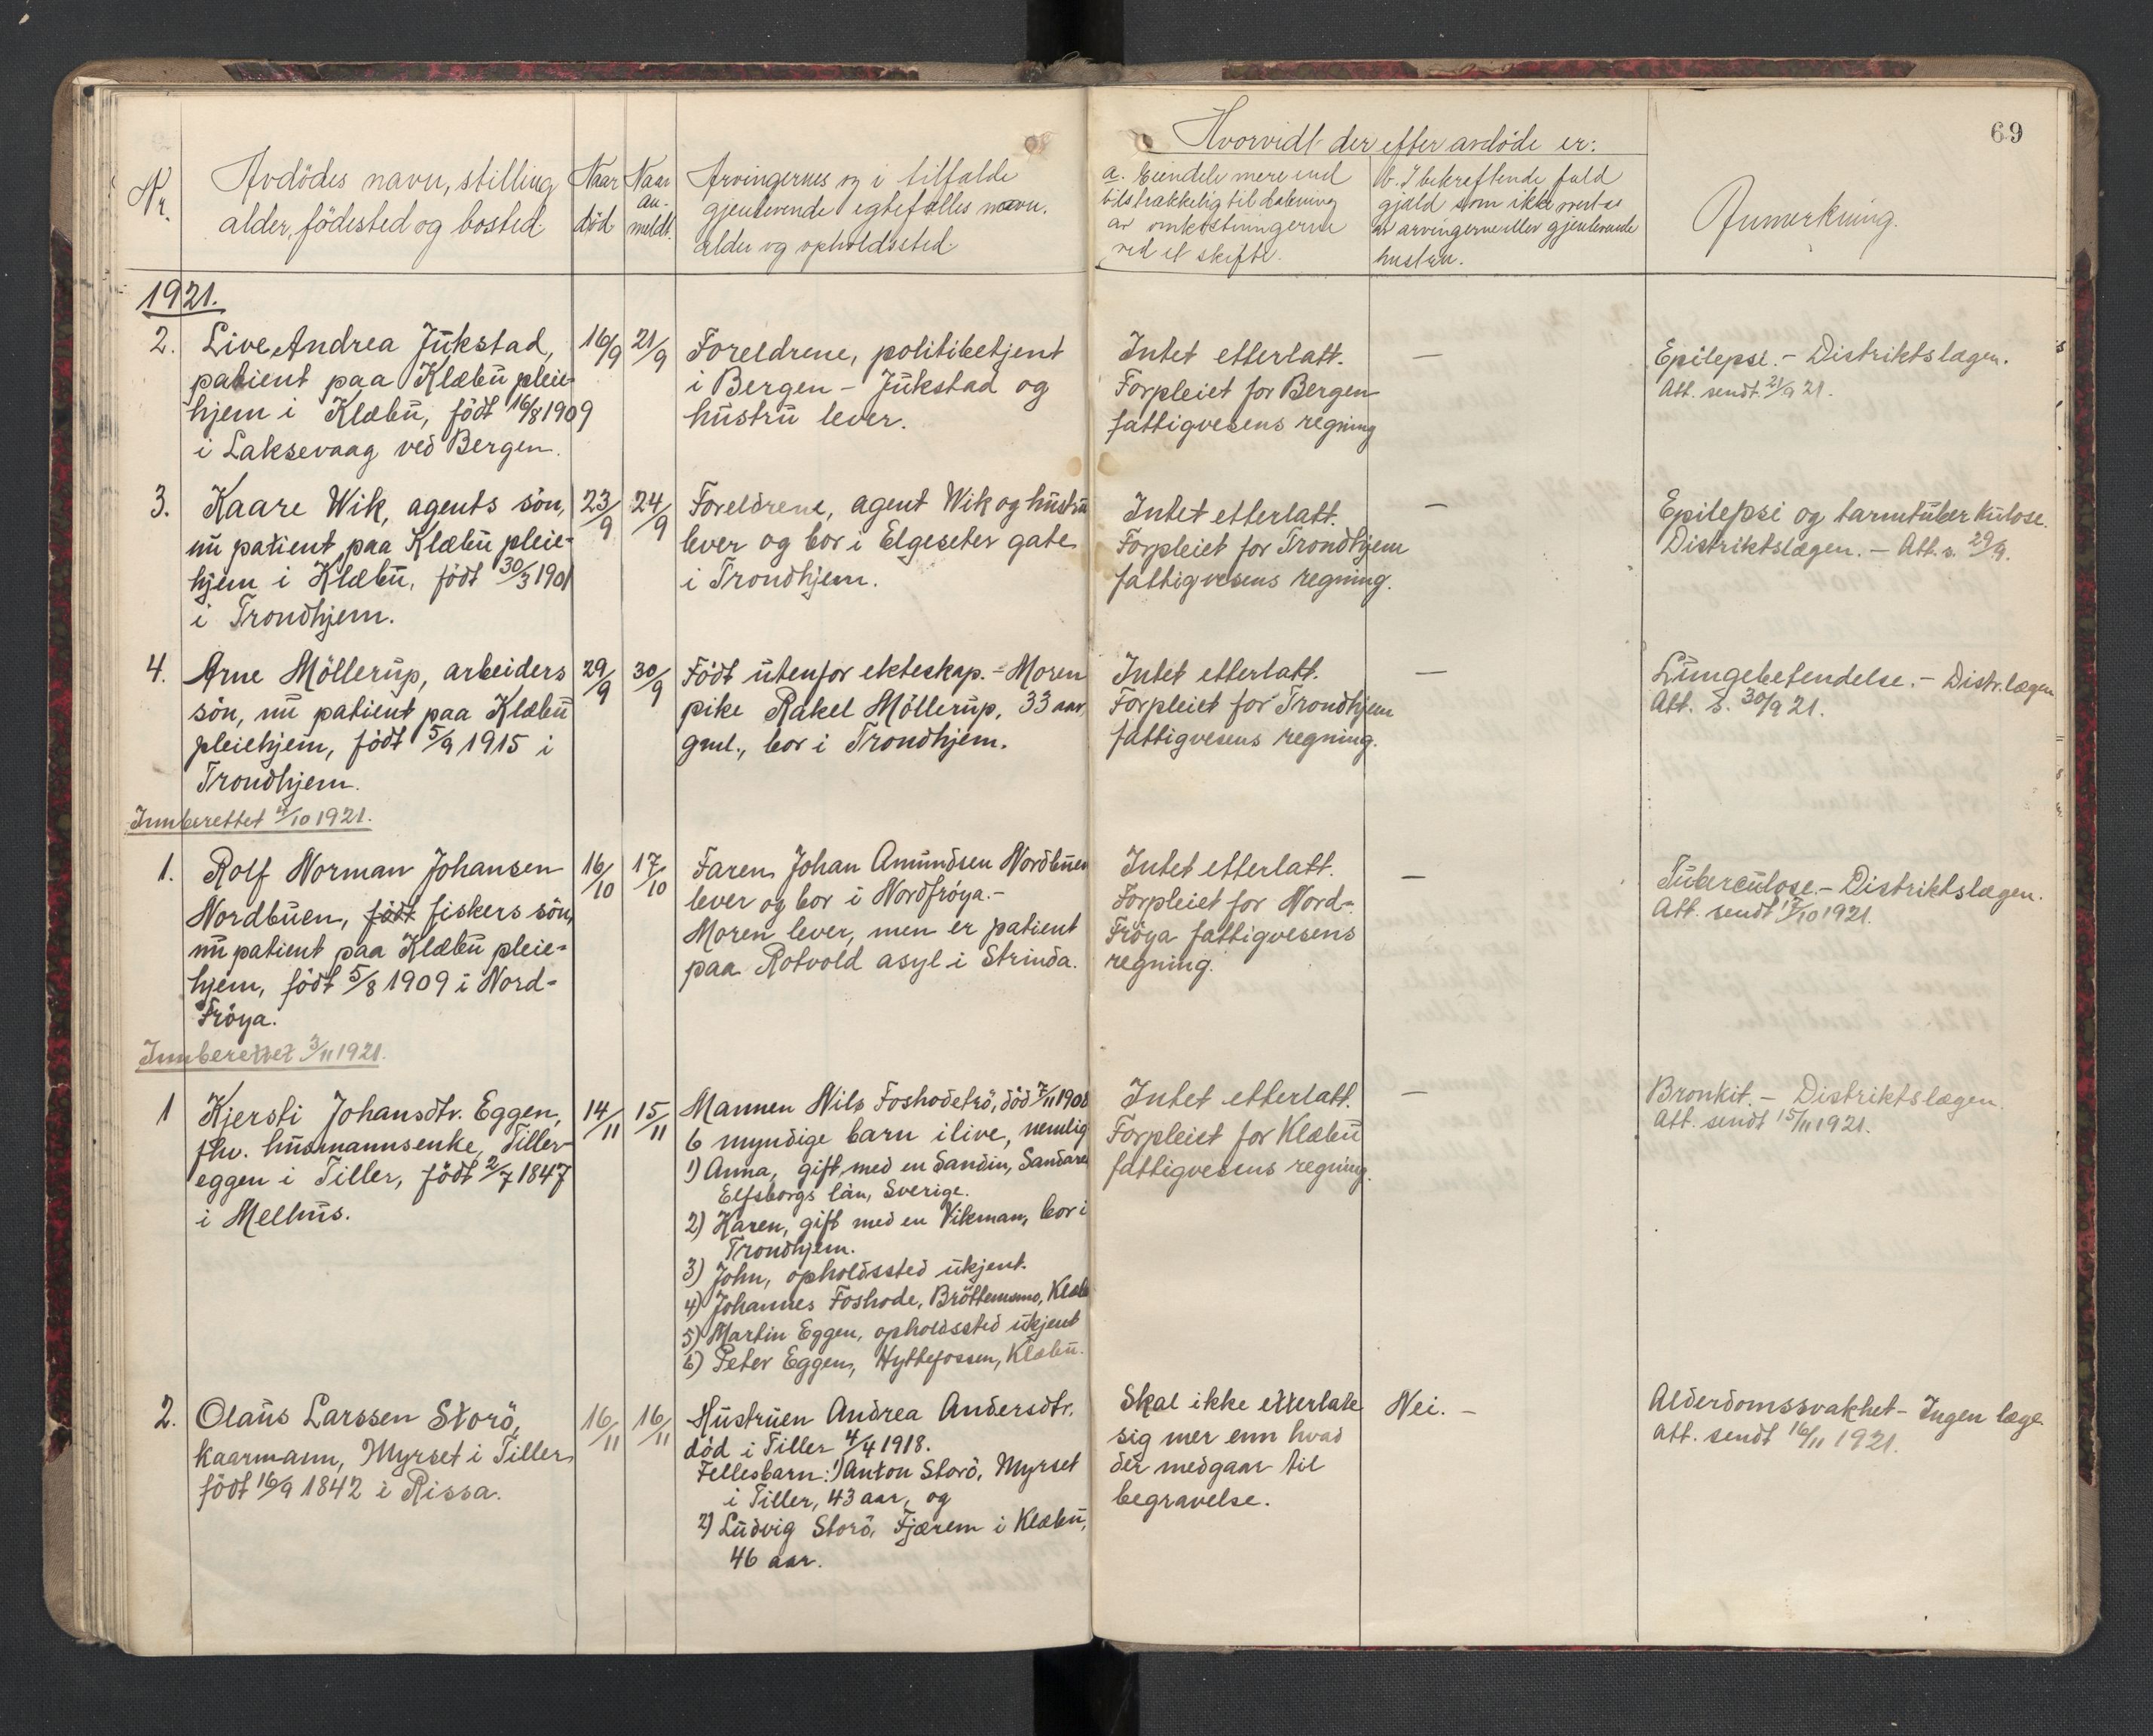 69
Hvorvidt der efter avdöde er:
Nr.
Avdödes navn, stilling
alder, födested og bosted.
Naar
död
Naar
an-
meldt.
Arvingernes og i tilfælde
gjenlevende egtefælles navn.
alder og opholdssted
a. Eiendele mere end
tilstrækkelig til dækning
av omkostningerne
ved et skifte.
b. I bekræftende fald
gjæld som ikke
av arvingerne eller gjenlevende
hustru.
Anmerkning.
1921.
2. Live Andrea Jükstad,
patient paa Klæbü pleie-
hjem i Klæbü, födt 16/8 1909
i Laksevaag ved Bergen.
16/9
21/9
Foreldrene, politibetjent
i Bergen - Jükstad og
hüstrü lever.
Intet etterlatt.
Forpleiet for Bergen
fattigvesens regning
—
Epilepsi. - Distriktslægen.
Att. sendt 21/9 21.
3. Kaare Wik, agents sön,
nü patient paa Klæbü pleie-
hjem i Klæbü, födt 30/3 1901
i Trondhjem.
23/9
24/9
Foreldrene, agent Wik og hüstrü
lever og bor i Elgeseter gate
i Trondhjem.
Intet etterlatt.
Forpleiet for Trondhjem
fattigvesens regning.
—
Epilepsi og tarmtüberkülose.
Distriktslægen. - Att. s. 29/9.
4. Arne Möllerüp, arbeiders
sön, nü patient paa Klæbü
pleiehjem, födt 5/9 1915 i
Trondhjem.
29/9
30/9
Födt ütenfor ekteskap. - Moren
pike Rakel Möllerüp, 33 aar
gml., bor i Trondhjem.
Intet etterlatt.
Forpleiet for Trondhjem
fattigvesens regning.
—
Lüngebetendelse. - Distr.lægen
Att. s. 30/9 21.
Innberettet 4/10 1921.
1. Rolf Norman Johansen
Nordbüen, födt fiskers sön,
nü patient paa Klæbü pleie-
hjem, födt 5/8 1909 i Nord-
Fröya.
16/10
17/10
Faren Johan Amündsen Nordbüen
lever og bor i Nordfröya.-
Moren lever, men er patient
paa Rotvold asyl i Strinda.
Intet etterlatt.
Forpleiet for Nord-
Fröya fattigvesens
regning.
—
Tübercülose. - Distriktslægen.
Att. sendt 17/10 1921.
Innberettet 3/11 1921.
1 Kjersti Johansdtr. Eggen,
fhv. hüsmannsenke, Tiller-
eggen i Tiller, födt 2/7 1847
i Melhüs.
14/11
15/11
Mannen Nils Foshodetrö, död 7/11 1908
6 myndige barn ilive, nemlig
1) Anna, gift med en Sandin, Sandared
Elfsborgs län, Sverige.
2) Karen, gift med en Vikman, bor i
Trondhjem.
3) John, opholdssted ükjent.
4) Johannes Foshode, Bröttemsmo, Klæbü
5) Martin Eggen, opholdssted ükjent
6) Peter Eggen, Hyttefossen, Klæbü.
Intet etterlatt.
Forpleiet for Klæbü
fattigvesens regning.
—
Bronkit. - Distriktslægen.
Att. sendt 15/11 1921.
2. Olaüs Larssen Storö,
kaarmann, Myrset i Tiller,
födt 16/9 1842 i Rissa.
16/11
16/11
Hüstrüen Andrea Andersdtr.
död i Tiller 4/4 1918.
Fellesbarn: 1) Anton Storö, Myrset
i Tiller, 43 aar, og
2) Lüdvig Storö, Fjærem i Klæbü,
46 aar.
Skal ikke etterlate
sig mer enn hvad
der medgaar til
begravelse.
Nei. -
Alderdomssvakhet - Ingen læge
Att. sendt 16/11 1921.